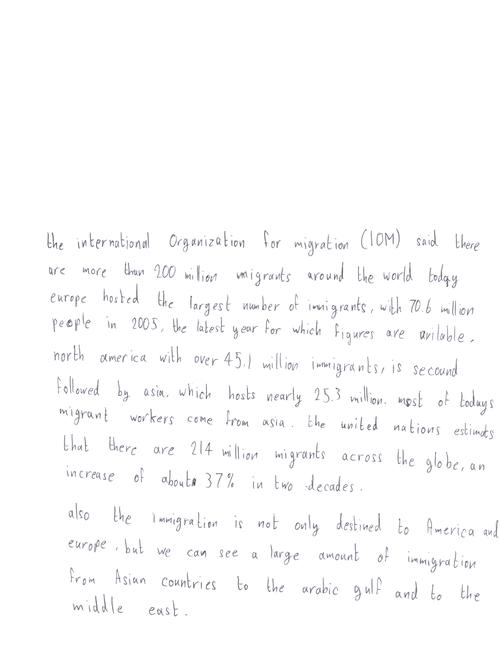 the international Organization for migration (IOM) said there
are more than 200 million migrants around the world today
europe hosted the largest number of immigrants, with 70.6 million
people in 2005, the latest year for which figures are avilable.
north america with over 45.1 million immigrants, is second
followed by asia. which hosts nearly 25.3 million. most of todays
migrant workers come from asia. the united nations estimates
that there are 214 million migrants across the globe, an
increase of about 37% in two decades.
also the immigration is not only destined to America and
europe, but we can see a large amount of immigration
from Asian countries to the arabic gulf and to the
middle east.